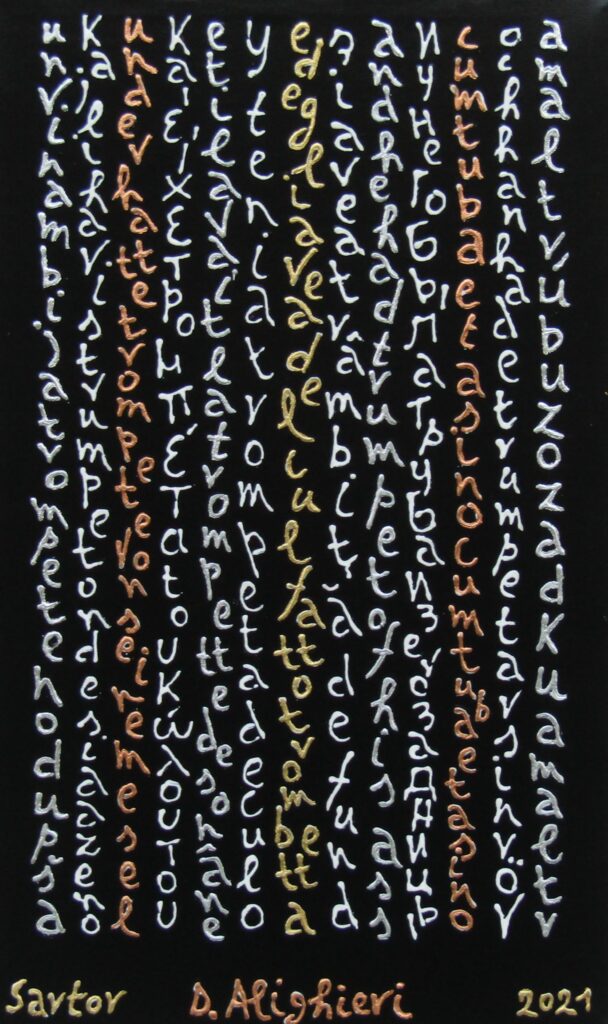 unviņambijatrompetenodupša
Kajlihavistrumpetondesiaazeno
underhattetrompetevonseiremesel
Καιείχετρομπέτατουκώλουτου
etilavaitlatrompettedesonâne
yteniatrompetadeculo
edegliaveadelculfattotrombetta
șiaveatrâmbițădefund
andhehadtrumpetofhisass
иунегобылатрубаизегозадницы
cumtubaetasinocumtubaetasino
ochhanhadetrumpetavsinröv
amaltrúbuzozadkuamaltr
Sartor D. Alighieri 2021